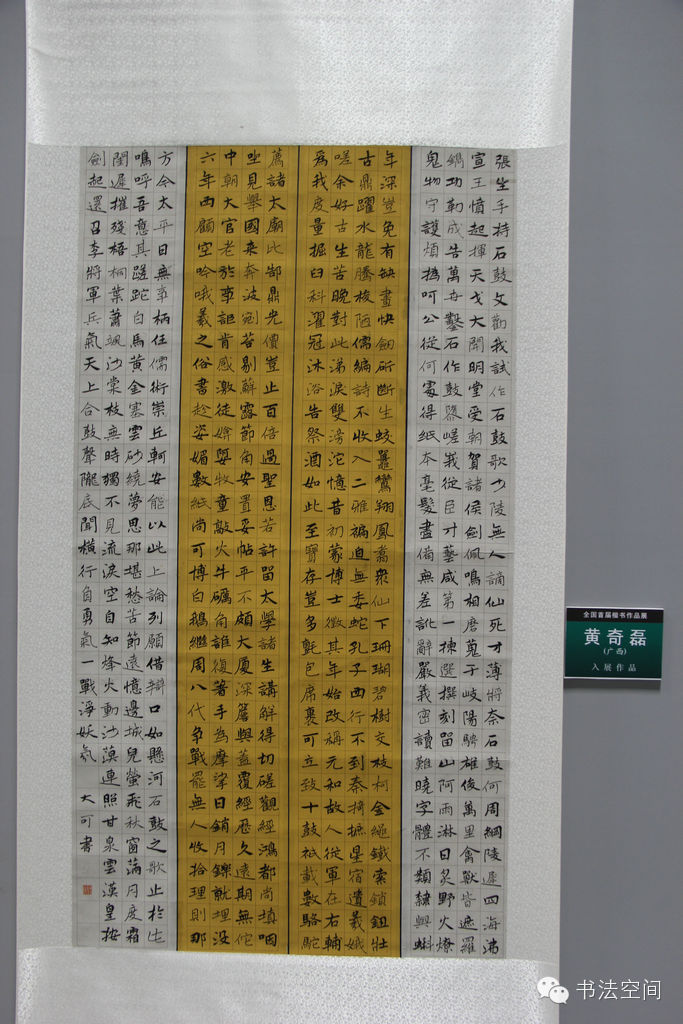 張生手持石鼓文勸我試作石鼓歌少陵無人謫仙死才薄將奈石鼓何周綱陵遲四海沸
宣王憤起揮天戈大開明堂受朝賀諸侯劍佩鳴相磨蒐于岐陽騁雄俊萬里禽獸皆遮羅
鐫功勒成告萬世鑿石作鼓隳嵯峨從臣才藝咸第一揀選撰刻留山阿雨淋日炙野火燎
鬼物守護煩撝呵公從何處得紙本毫髮盡備無差訛辭嚴義密讀難曉字體不類隸與蝌
年深豈免有缺畫快劍斫斷生蛟鼉鸞翔鳳翥衆仙下珊瑚碧樹交枝柯金繩鐵索鎖鈕壯
古鼎躍水龍騰梭陋儒編詩不收入二雅褊迫無委蛇孔子西行不到秦掎摭星宿遺羲娥
嗟余好古生苦晚對此涕淚雙滂沱憶昔初蒙博士徵其年始改稱元和故人從軍在右輔
爲我度量掘臼科濯冠沐浴告祭酒如此至寶存豈多氈包席裹可立致十鼓祇載數駱駝
薦諸太廟比郜鼎光價豈止百倍過聖恩若許留太學諸生講解得切磋觀經鴻都尚填咽
坐見舉國來奔波剜苔剔蘚露節角安置妥帖平不頗大廈深簷與蓋覆經歷久遠期無佗
中朝大官老於事詎肯感激徒媕婀牧童敲火牛礪角誰復著手爲摩挲日銷月鑠就埋沒
六年西顧空吟哦羲之俗書趁姿媚數紙尚可博白鵝繼周八代爭戰罷無人收拾理則那
方今太平日無事柄任儒術崇丘軻安能以此上論列願借辯口如懸河石鼓之歌止於此
嗚呼吾意其蹉跎白馬黃金塞雲砂繞夢思那堪愁苦節遠憶邊城兒螢飛秋窗滿月度霜
閨遲摧殘梧桐葉蕭颯沙棠枝無時獨不見流淚空自知烽火動沙漠連照甘泉雲漢皇按
劍起還召李將軍兵氣天上合鼓聲隴底聞橫行自勇氣一戰淨妖氛 大可書
全国首届楷书作品展
黄奇磊
(广西)
入展作品
书法空间